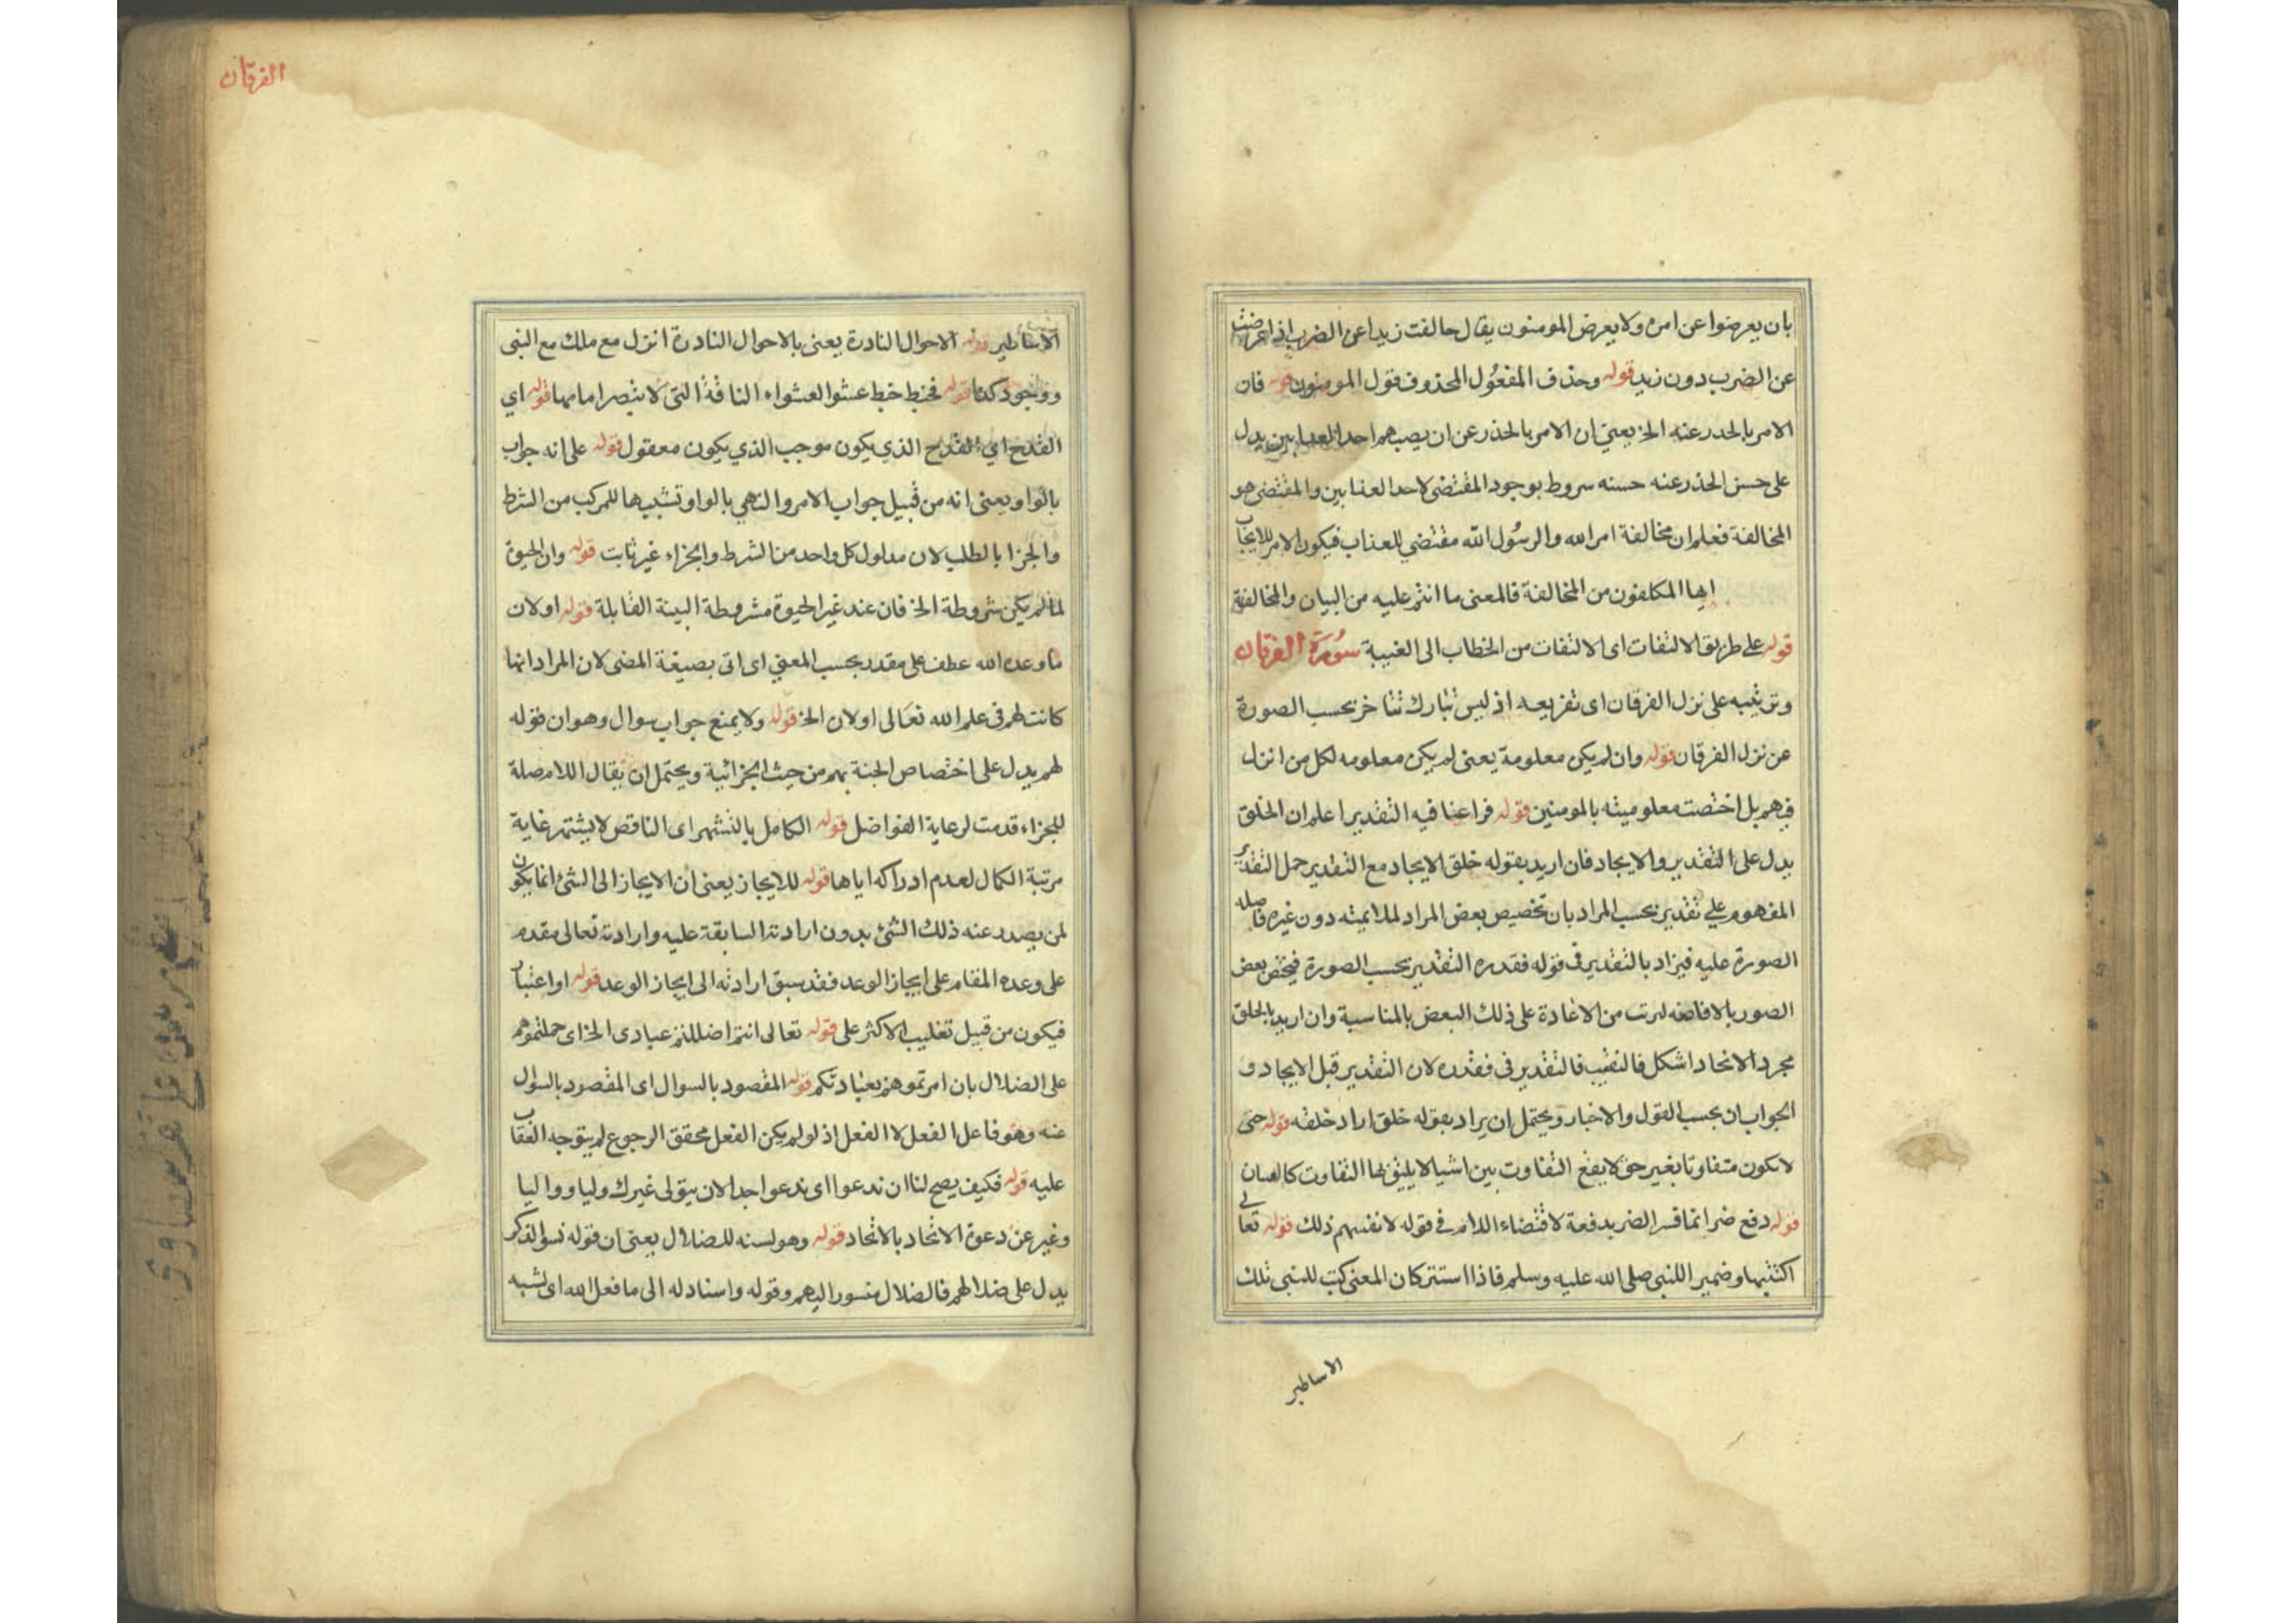 بان يعرضوا عن امره ولا يعرض المومنون يقال حالفت زيدا عن الضرب اذا اعرضت
عن الضرب دون زيد قوله وحذف المفعُول المحذوف قول المومنون قوله فان
الامر بالحدر عنه الخ يعني ان الامر بالحذر عن ان يصبهم احد العذابين يدل
على حسن الحذر عنه حسنه سروط بوجود المقتضى لاحد العذابين والمقتضى هو
المخالفة فعلم ان مخالفة امر الله والرسُول الله مقتضي للعذاب فيكون الامر للايجاب
ايها المكلفون من المخالفة فالمعنى ما انتم عليه من البيان والمخالفة
قوله على طريق الالتفات اى الالتفات من الخطاب الى الغيبة سُورَة الفرقان
وترتيبه على نزل الفرقان اى تفريعه اذ ليس تبارك تتاخر بحسب الصورة
عن نزل الفرقان قوله وان لم يكن معلومة يعنى لم يكن معلومه لكل من انزل
فيهم بل اختصت معلوميته بالمومنين قوله فراعنا فيه التقدير اعلم ان الخلق
يدل على التقدير والايجاد فان اريد بقوله خلق الايجاد مع التقدير حمل التقدير
المفهوم على تقدير بحسب المراد بان تخصيص بعض المراد لملايمته دون غيره فاصله
الصورة عليه فيزاد بالتقدير فى قوله فقدره التقدير بحسب الصورة فيختص بعض
الصور بالافاضه لىرتب من الاعادة على ذلك البعض بالمناسبة وان اريد بالخلق
مجرد الاتحاد اشكل فالتقيب فالتقدير فى فقدره لان التقدير قبل الايجاد و
الجواب ان بحسب القول والاخبار ويحتمل ان يراد بقوله خلق اراد خلقه قوله حتى
لا يكون متفاوتا بغير حق لا يقع التفاوت بين اشيا لا يليق لها التفاوت
قوله دفع ضر انما قسر الضر بدفعة لاقتضاء اللام فى قوله لانفسهم ذلك قوله تعالى
اكتتبها وضمير اللنبى صلى الله عليه وسلم فاذا استتر كان المعنى كتب للنبى تلك
الاساطير
الفرقان
الاساطير قوله الاحوال النادرة يعنى بالاحوال النادرة انزل مع ملك مع النبى
ووجود كذا قوله فخبط خبط عشوا العشواء الناقة التى لا تبصر امامها قوله اي
القدح اي القدح الذي يكون موجب الذي يكون معقول قوله على انه جواب
بالواو يعنى انه من قبيل جواب الامر والنهي بالواو تشبيها للمركب من الشرط
والجزا بالطلب لان مدلول كل واحد من الشرط والجزاء غير ثابت قوله وان الحيوة
لما لم يكن شروطة الخ فان عند غير الحيوة مشروطة البينة القابلة قوله او لان
ما وعده الله عطف على مقدر بحسب المعني اى اتى بصيغة المضى لان المراد انها
كانت لهم فى علم الله تعَالى او لان الخ قوله ولا يمنع جواب سوال وهو ان قوله
لهم يدل على اختصاص الجنة بهم من حيث الجزائية ويحتمل ان يقال اللام صلة
للجزاء قدمت لرعاية الفواضل قوله الكامل بالتشهر اى الناقص لا يشتهر غاية
مرتبة الكمال لعدم ادراكه اياها قوله للايجاز يعنى ان الايجاز الى الشئ انما يكون
لمن يصدر عنه ذلك الشئ بدون ارادته السابقة عليه وارادته تعالى مقدم
على وعده المقام على ايجاز الوعد فقد سبق ارادته الى ايجاز الوعد قوله او اعتبار
فيكون من قبيل تغليب الاكثر على قوله تعالى انتم اضللتم عبادى الخ اى حملتموهم
على الضلال بان امرتموهم بعبادتكم قوله المقصود بالسوال اى المقصود بالسوال
عنه وهو فاعل الفعل لا الفعل اذ لو لم يكن الفعل محقق الرجوع لم يتوجه العقاب
عليه قوله فكيف يصح لنا ان ندعوا اى ندعوا احدا لان يتولى غيرك وليا ووا ليا
وغير عن دعوة الاتحاد بالاتحاد قوله وهو لسنه للضلال يعنى ان قوله نسوا الذكر
يدل على ضلالهم فالضلال منسور اليهم وقوله واسناد له الى ما فعل الله اى لشبه